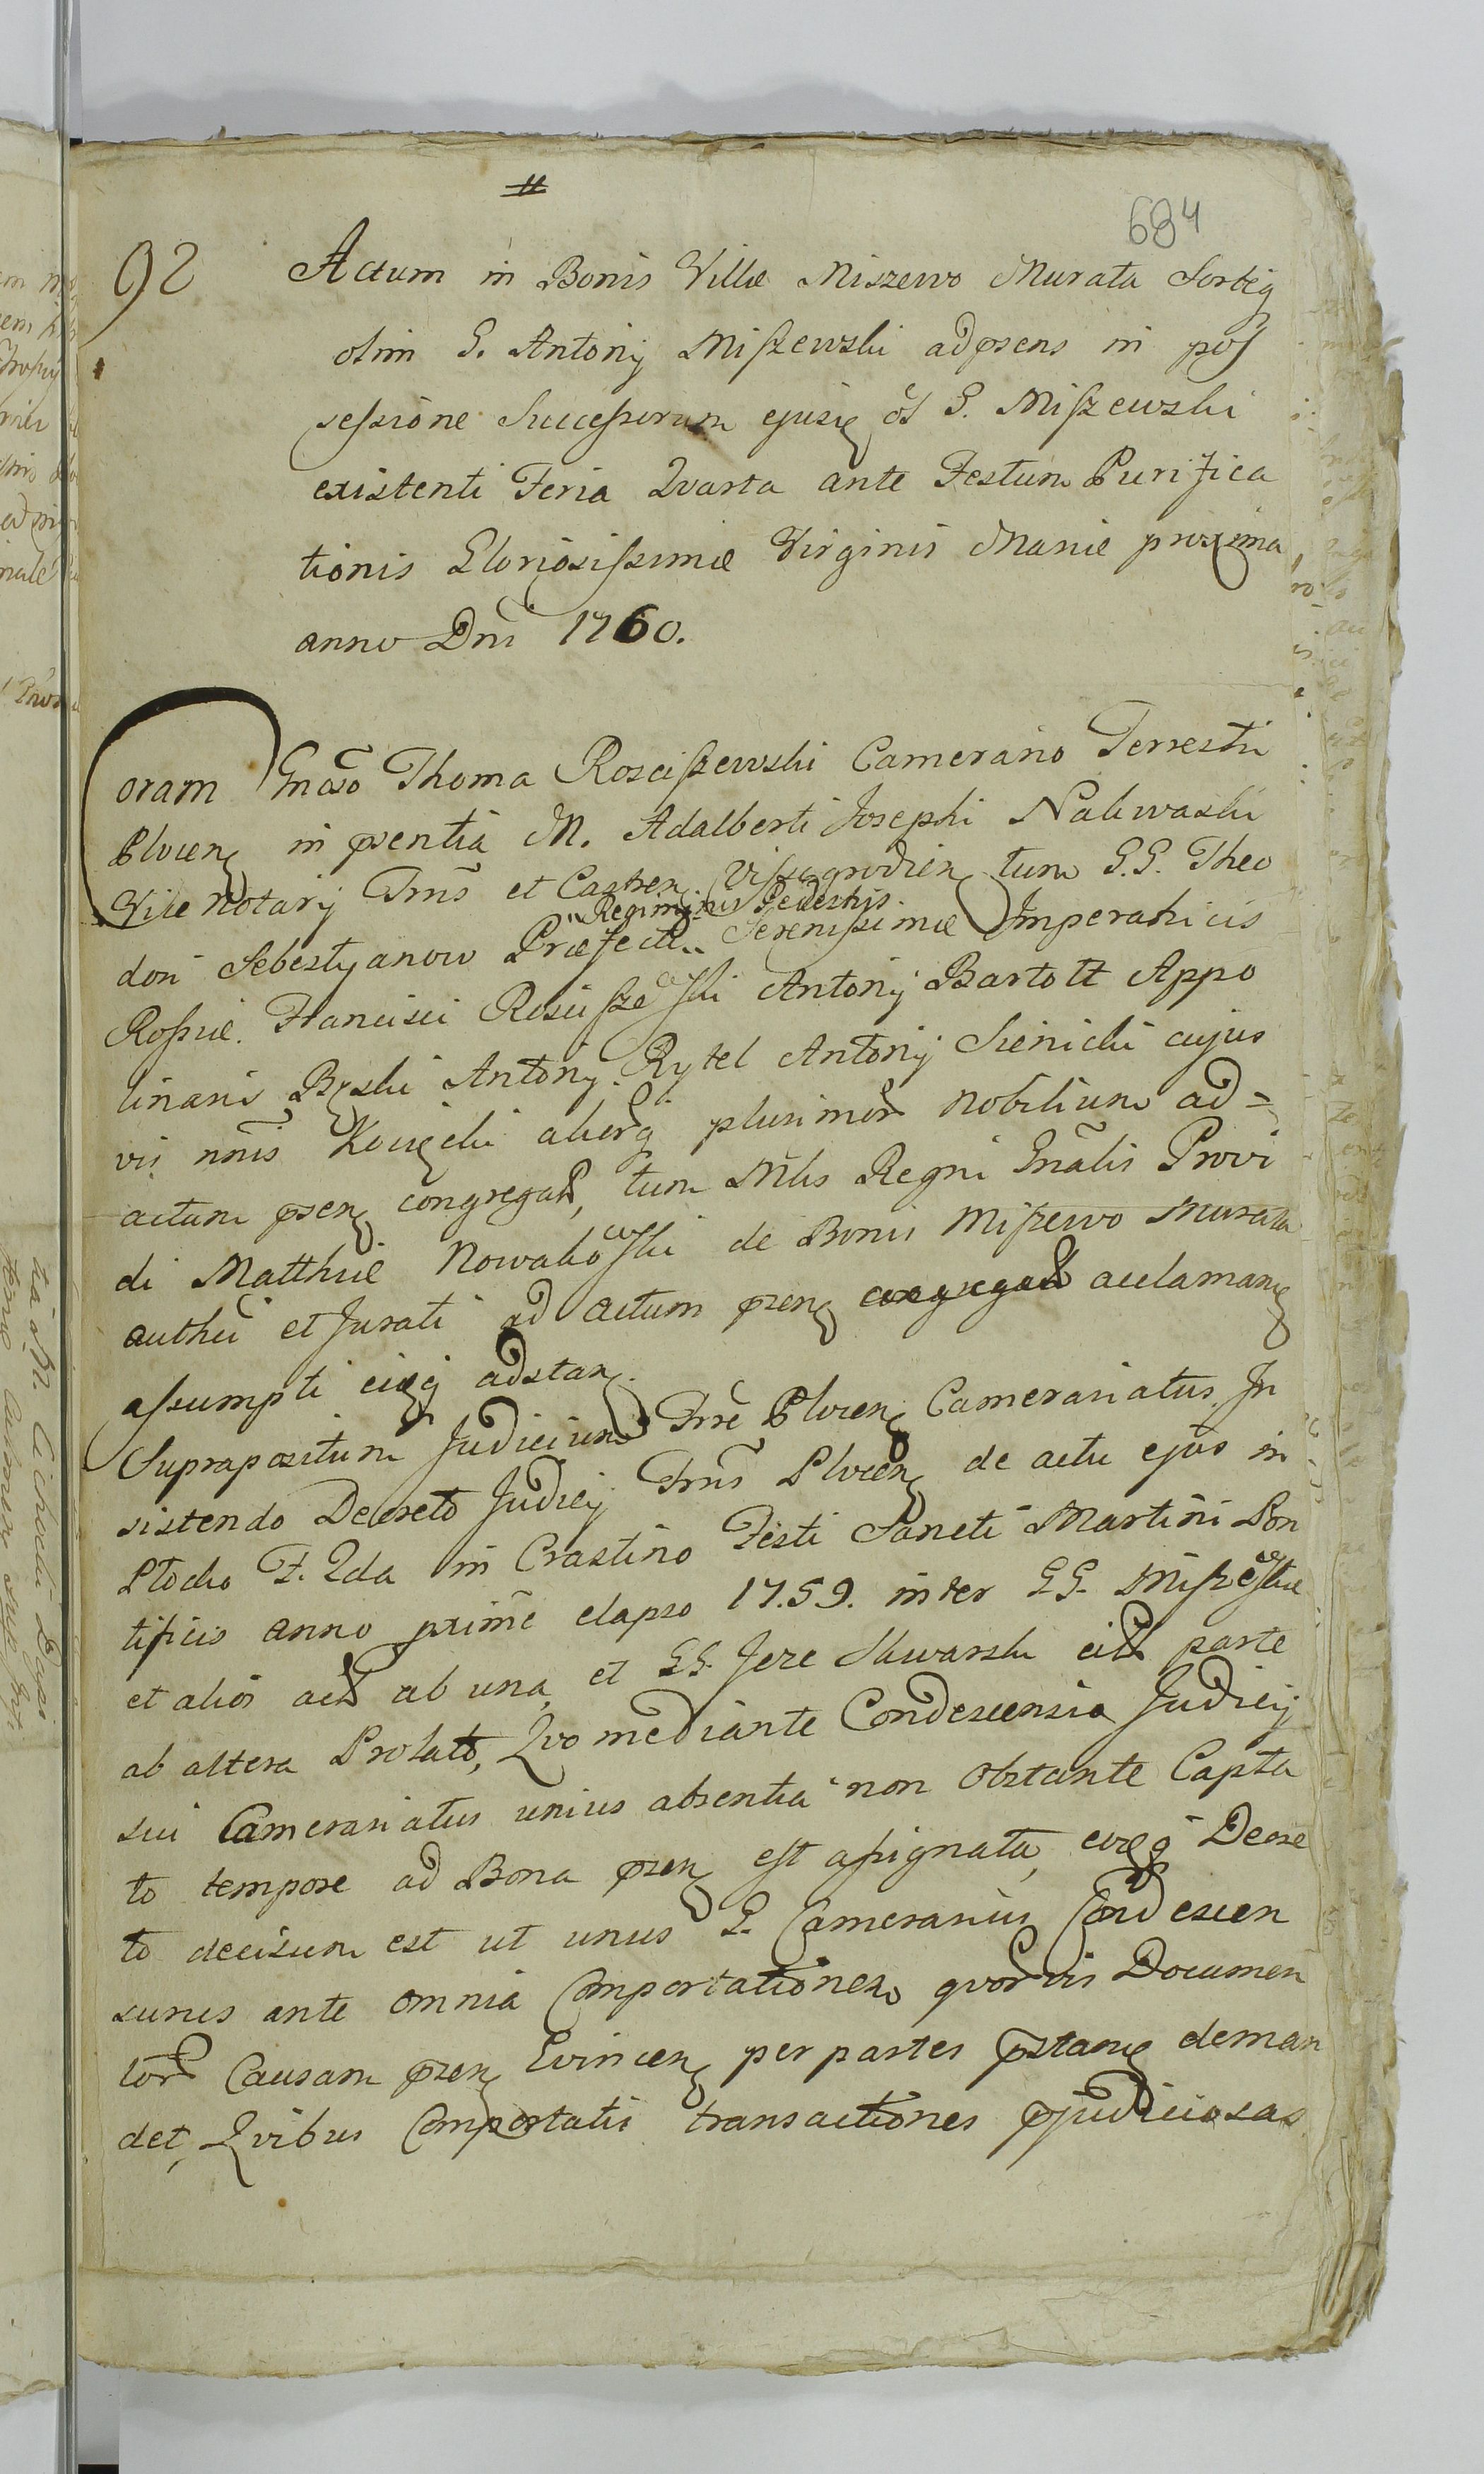 684
92
Actum in Bonis Villæ Miszewo Murata Sortis
olim G. Antonij Miszewski ad psens in pos
sessione Successorum ejusd ol G. Miszewski
existenti Feria Qvarta ante Festum Purifica
tionis Gloriosissimæ Virginis Mariæ proxima
anno Dni 1760.
Coram Gnoso Thoma Rosciszewski Camerario Terrestri
Plocen in psentia M. Adalberti Josephi Nakwaski
Vice Notarij Trris et Castren Vissegrodien tum G.G. Theo
Regiminis Pedestris
dori Sebestyanow Præfecti Serenissimæ Imperatricis
Rossiæ. Francisci Roscisze͠wski Antonij Bartolt Appo
linaris Bęski Antonij Rytel Antonij Sienicki cujus
vis nnis Kocięcki aliorq plurimor Nobilium ad=
actum psen congregat, tum Mtlis Regni Gnalis Provi
di Matthiæ Nowakowski de Bonis Miszewo Murata
authci et Jurati ad actum psen congregat acclaman
assumpti eidq adstan.
Suprapositum Judicium Trre Plocen Camerariatus. In
sistendo Decreto Judicij Trris Plocen de actu ejus in
Plocko F. 2da in Crastino Festi Sancti Martini Pon
tificis anno prime elapso 1759. inter G.G. Miszewskie
et alios act ab una, et GG. Jeze Skwarski citt parte
ab altera Prolato, Qvo mediante Condescensia Judicij
sui Camerariatus unius absentia non Obstante Capta
to tempore ad Bona psen est assignata, eodq Decre
to decisum est ut unus G. Camerarius Condescen
surus ante omnia Comportationem qvorvis Documen
tor Causam psen Evincen per partes pstan deman
det, Qvibus Comportatis transactiones pjudiciosas